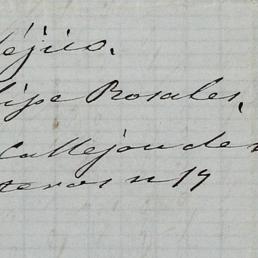 éjico.
lipe Rosales,
Callejon de
teros n 17